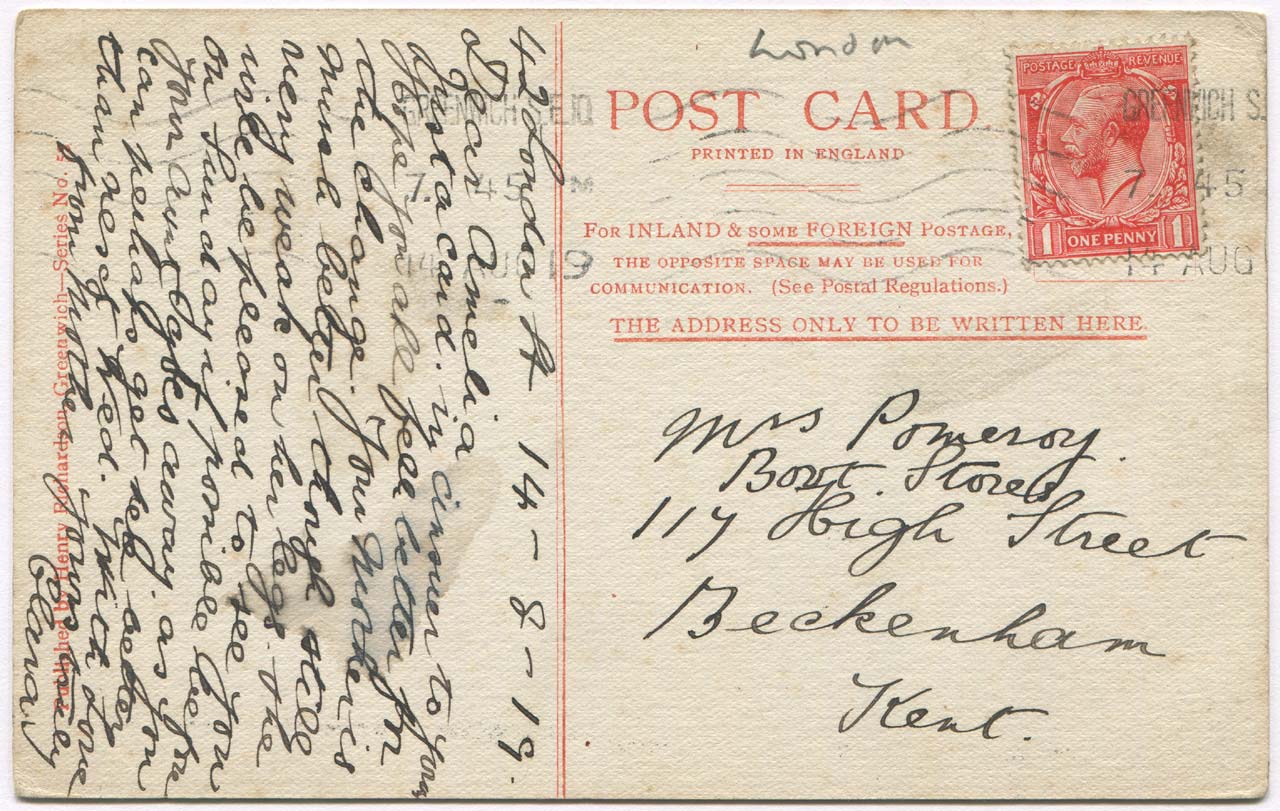 London
POST CARD
PRINTED IN ENGLAND
FOR INLAND & SOME FOREIGN POSTAGE,
THE OPPOSITE SPACE MAY BE USED FOR
COMMUNICATION. (See Postal Regulations.)
THE ADDRESS ONLY TO BE WRITTEN HERE.
POSTAGE REVENUE
1 ONE PENNY 1
GREENWICH S.E.10
7. 45 PM
14 AUG 19
GREENWICH S.
7. 45
14 AUG
Mrs Pomeroy.
Boot Stores
117 High Street
Beckenham
Kent.
42 London St 14-8-19.
Dear Amelia
Just a card. in answer to yours
Hope you all feel better for
the change. Your Mother is
much better though still
very weak on her legs. she
will be pleased to see you
on Sunday if possible before
your Aunt goes away. as you
can perhaps get help better
than next Wed. with love
from Mother, yours truly
Clara
Published by Henry Richardson, Greenwich—Series No. 5